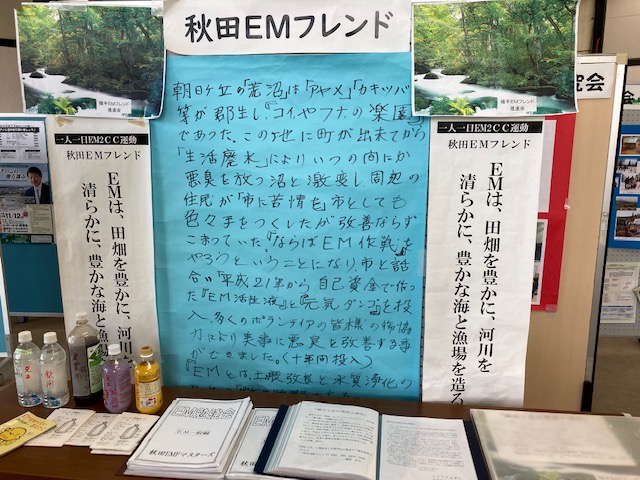 秋田EMフレンド
横手EMフレンド
推進会
横手EMフレンド
推進会
一人一日EM2CC運動
秋田EMフレンド
EMは、田畑を豊かに、河川を
清らかに、豊かな海と漁場
朝日ケ丘の「菅沼」は「アヤメ」「カキツバ
等が郡生し「コイやフナの楽園」
であった。この地に町が出来てから
「生活廃水」によりいつの間にか
悪臭を放つ沼と激変し周辺の
住民が「市に苦情も市としても
色々手をつくしたが改善ならず
こまっていた「ならばEM作戦を
やろうということになり市と話
合い「平成21年から自己資金で作っ
た『EM活性液』と「元気ダンゴ」を投
入、多くのボランテイアの皆様の御協
力により美事に悪臭を改善する事
ができました。(十年間投入)
『EMとは、土壌改良と水質浄化の
一人一日EM2CC運動
秋田EMフレンド
EMは、田畑を豊かに、河川を
清らかに、豊かな海と漁場を造ろ
EM勉強会
EM一般編
秋田EMFマスターズ
11/12